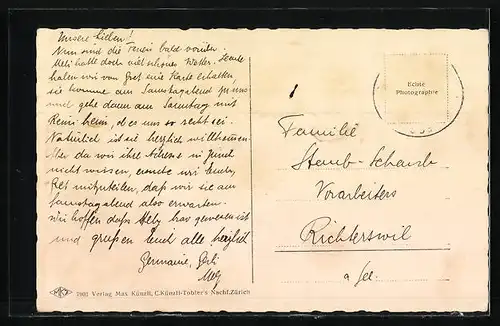 Unsere Lieben!
Nun sind die Ferien bald vorüber.
Meli hatte doch viel schönes Wetter. Heute
haben wir von Gret eine Karte erhalten,
sie komme am Samstagabend zu uns
und gehe dann am Sonntag mit
heim, ob es uns so recht sei.
Natürlich ist sie herzlich willkommen.
Aber da wir ihre Adresse in Zürich
nicht wissen, wir
Gret mitzuteilen, daß wir sie am
Samstagabend also erwarten.
Wir hoffen daß gewesen ist
und grüßen Euch alle herzlich
Germaine,
Echte
Photographie
Familie
Vorarbeiters
Richterswil
a See.
7901 Verlag Max Künzli, C. Künzli-Tobler's Nachf. Zürich